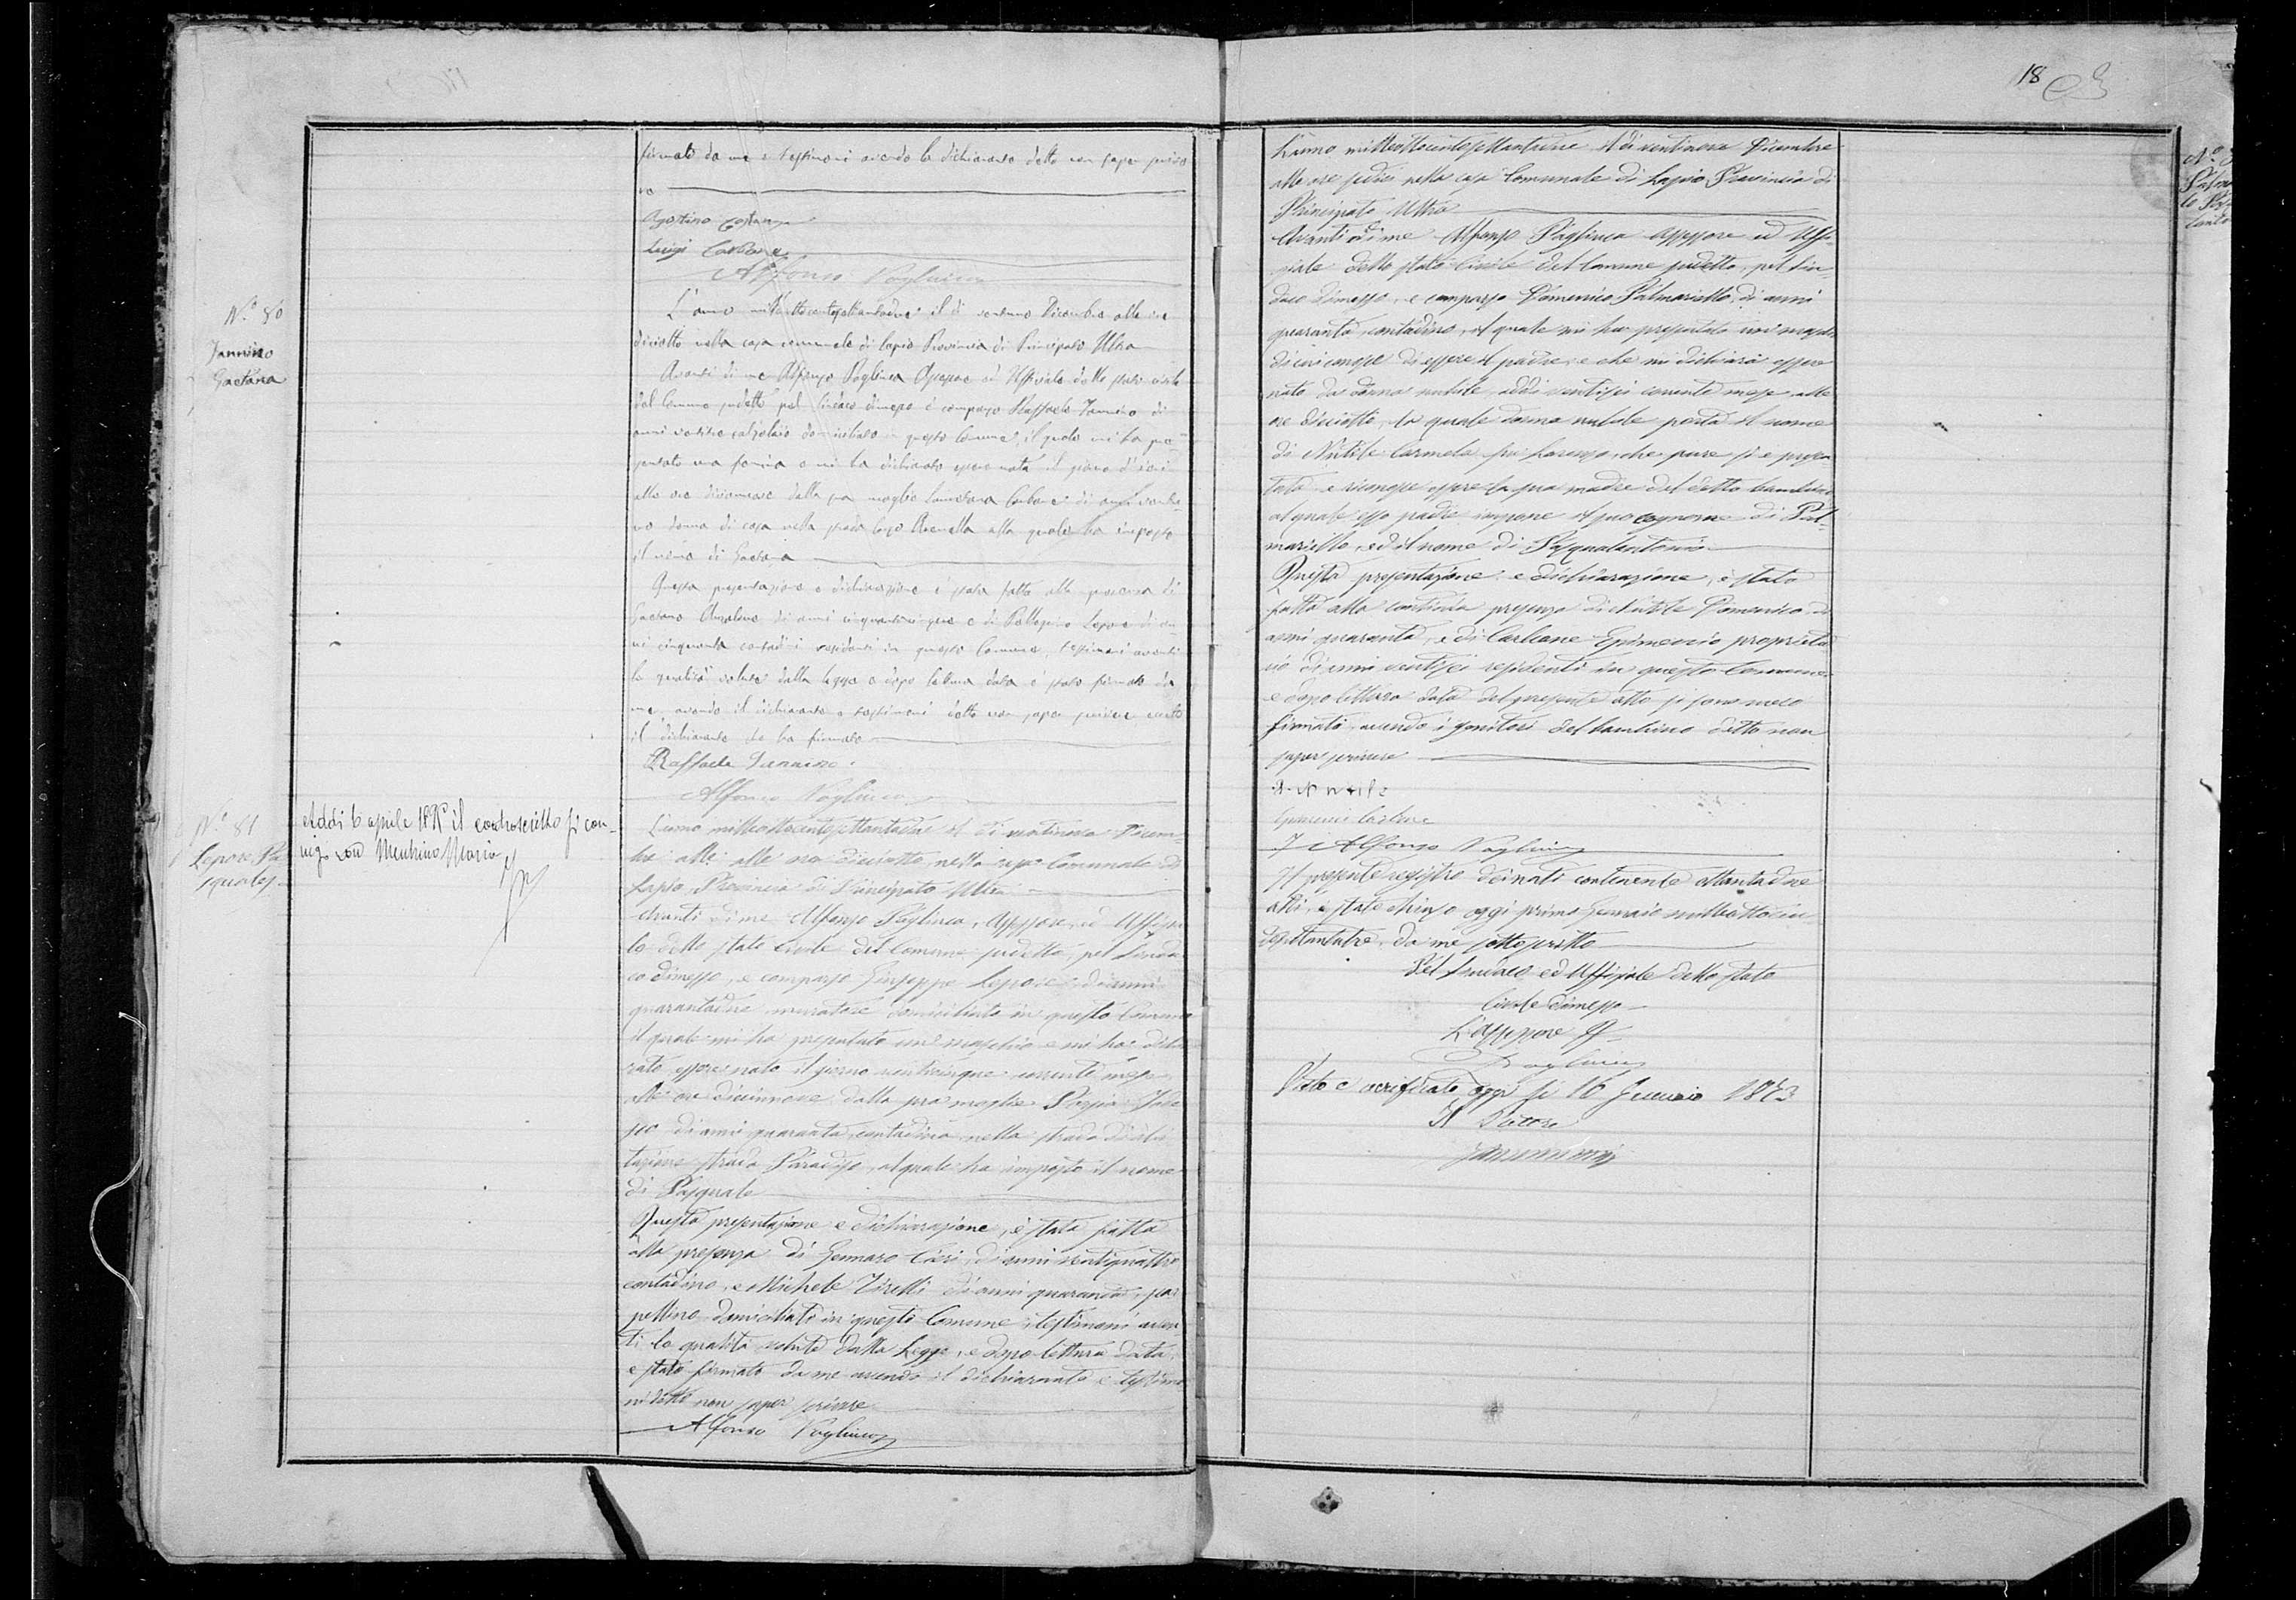 18
firmato da me e testimoni avendo la dichiarante detto non saper scrive
re
Agostino
Luigi Carbone
Alfonso Pagliuca
Nº 80
Jannino
Gaetana
L'anno milleottocentosettantadue il dì ventuno Dicembre alle ore
diciotto nella casa comunale di Lapio Provincia di Principato Ultra
Avanti di me Alfonso Pagliuca Assessore ed Uffiziale dello stato civile
del Comune sudetto pel Sindaco dimesso è comparso Raffaele Jannino di
anni calzolaio domiciliato in questo Comune, il quale mi ha pre
sentato una femina e mi ha dichiarato essere nata il giorno d'jeri
alle ore diciannove dalla sua moglie Carbone di anni
no donna di casa nella strada alla quale ha imposto
il nome di Gaetana
Questa presentazione e dichiarazione è stata fatta alla presenza di
Gaetano di anni cinquantacinque e di Pellegrino Lepore di an
ni cinquanta contadini residenti in questo Comune, testimoni aventi
le qualità volute dalla legge e dopo lettura data è stato firmato da
me, avendo il dichiarante e testimoni detto non saper scrivere eccetto
il dichiarante che ha firmato
Raffaele Iannino
Alfonso Pagliuca
Nº 81
Lepore Pa
squale
Addì 6 aprile il controscritto si con
con Maria
L'anno milleottocentosettantadue il dì ventinove Dicem
bre alle alle ore diciotto, nella casa Comunale di
Lapio Provincia di Principato Ultra
Avanti di me Alfonso Pagliuca, Assessore, ed Uffizia
le dello stato Civile del Comune sudetto, pel Sinda
co dimesso, è comparso Giuseppe Lepore di anni
quarantadue muratore domiciliato in questo Comune
il quale mi ha presentato un maschio e mi ha dichia
rato essere nato il giorno venticinque corrente mese
alle ore diciannove dalla sua moglie
di anni quaranta contadina nella strada di abi
tazione strada Paradiso, al quale ha imposto il nome
di Pasquale
Questa presentazione e dichiarazione, è stata fatta
alla presenza di Gennaro di anni ventiquattro
contadino, e Michele Tirelli di anni quaranta, scar
pellino domiciliati in questo Comune, testimoni aven
ti le qualità volute dalla Legge, e dopo lettura data
è stato firmato da me avendo il dichiarante e testimo
ni detto non saper scrivere
Alfonso Pagliuca
L'anno milleottocentosettantadue il dì ventinove Dicembre
alle ore sedici nella casa Comunale di Lapio Provincia di
Principato Ultra
Avanti di me Alfonso Pagliuca Assessore ed Uffi
ziale dello stato Civile del Comune sudetto, pel Sin
daco dimesso, è comparso Domenico Palmariello, di anni
quaranta, contadino, il quale mi ha presentato un maschio
di cui conosce di essere il padre, e che mi dichiara essere
nato da donna nubile, addì ventisei corrente mese alle
ore diciotto, la quale donna nubile porta il nome
di Nutile Carmela fu Lorenzo, che pure si è presen
tata e riconosce essere la sua madre del detto bambino
al quale esso padre impone il suo cognome di Pal
mariello, ed il nome di Pasqualantonio
Questa presentazione e dichiarazione, è stata
fatta alla continua presenza di Nutile Domenico di
anni quaranta, e di Carbone Epimenio proprieta
rio di anni ventisei residenti in questo Comune
e dopo lettura data del presente atto si sono meco
firmati, avendo i genitori del bambino detto non
saper scrivere
Nutile
Epimenio Carbone
Alfonso Pagliuca
Il presente registro dei nati contenente ottantadue
atti, è stato chiuso oggi primo Gennaio milleottocen
tosettantatre, da me sottoscritto
Pel Sindaco ed Uffiziale dello stato
Civile dimesso
L'assessore ff
Pagliuca
Visto e verificato oggi li 16 Gennaio 1873
Il Pretore